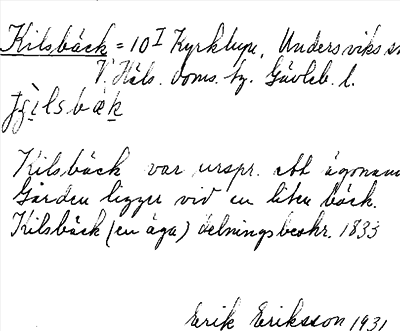 Kilsbäck = 10 I Kyrkbyn, Undersviks sn
V. Häls. doms. tg. Gävleb. l.
Kilsbäck var urspr. ett ägonamn
Gården ligger vid en liten bäck.
Kilsbäck (en äga) delningsbeskr. 1833
Erik Eriksson 1931